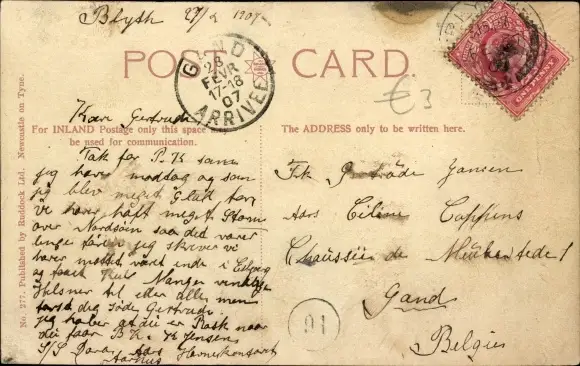 Blyth 27/2 1907
POST CARD
GAND
28
FEVR
17-18
07
ARRIVÉE
ONE PENNY
€3
Kære Gertrude
For INLAND Postage only this space may
be used for communication.
The ADDRESS only to be written here.
Tak for P. K som
jeg har modtag og som
jeg blev meget Glad for
vi har haft meget Storm
over Nordsøen saa det varer
lenge før jeg skriver vi
harer været inde i Esbjerg
Mange venlige
Hilsner til eder alle men
først dig søde Gertrude.
jeg haber at du er Rask naar
du faar B.K. K Jensen
S/S Aars
Aarhus Havnekontort
Frk Jansen
Aars Coppens
Chaussée de
Gand
Belgien
91
No. 277. Published by Ruddock Ltd. Newcastle on Tyne.